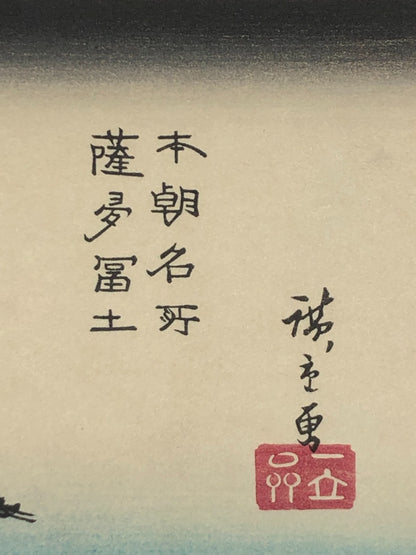 本朝名所
薩夛冨士
廣重画
一立
斎